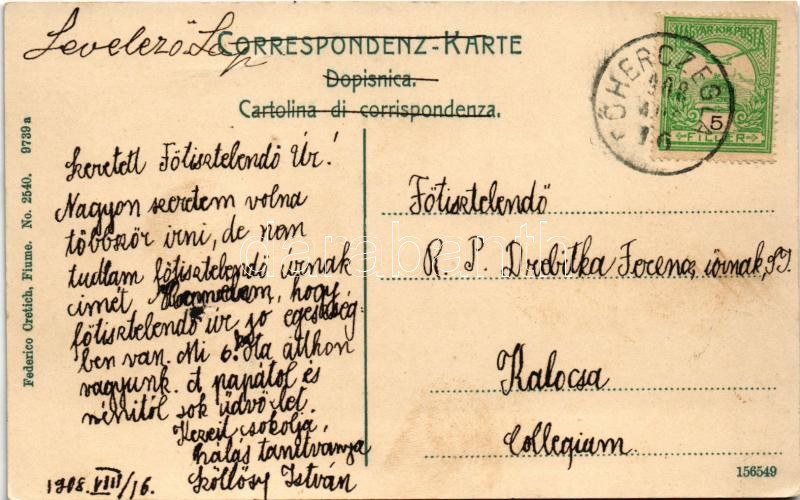 Levelező Lap
CORRESPONDENZ-KARTE
Dopisnica.
Cartolina di corrispondenza.
MAGYAR KIR. POSTA
5
FILLÉR
ŐHERCZEGL
908
16
Federico Cretich, Fiume. No. 2540. 9739a
Szeretett Főtisztelendő Úr!
Nagyon szeretem volna
többször irni, de nem
tudtam főtisztelendő úrnak
cimét, hogy
főtisztelendő úr jo egeszség-
ben van. Mi 6. óta átthon
vagyunk. A papától és
nénitől sok üdvözlet.
Kezeit csokolja,
hálás tanitványa
Szöllősy István
1908. VIII/16.
Főtisztelendő
R. P. Drebitka Ferencz úrnak, S.J.
Kalocsa
Collegium.
156549
darabanth